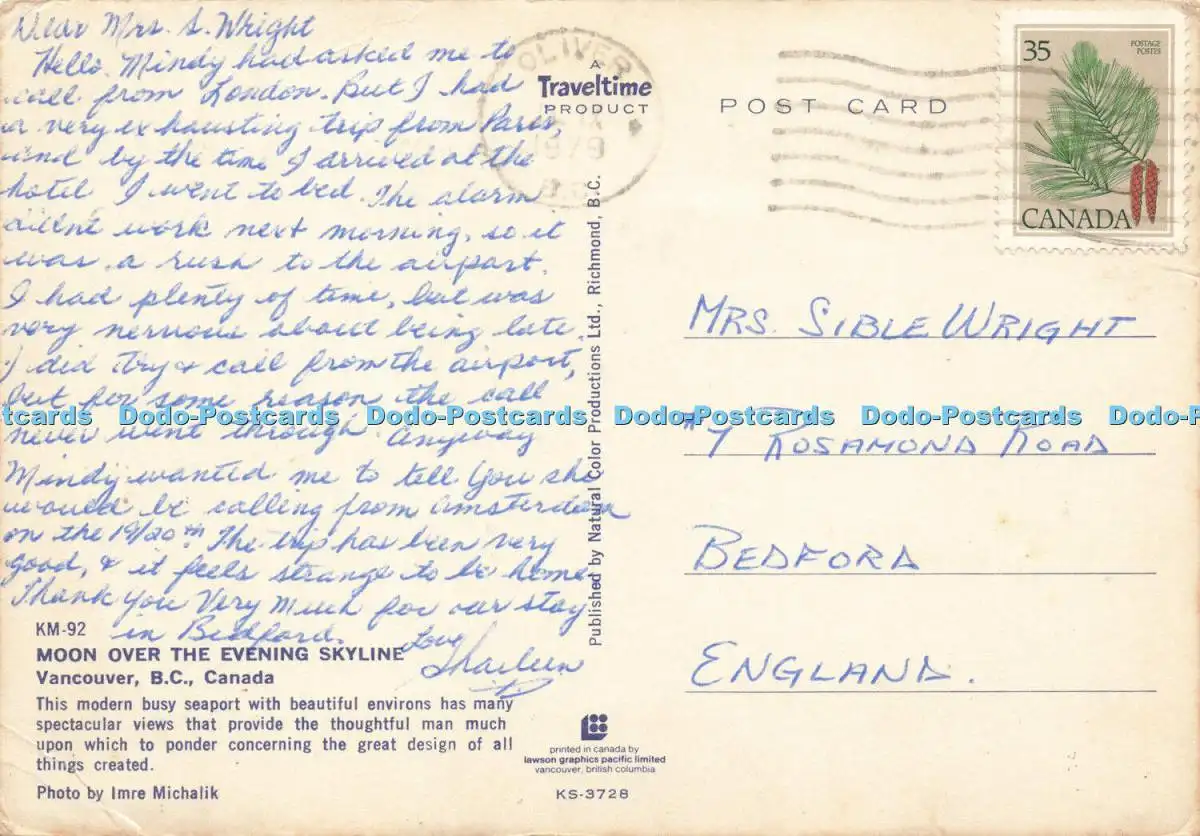 Dear Mrs. S. Wright
Hello. Mindy had asked me to
call from London. But I had
a very exhausting trip from Paris,
and by the time I arrived at the
hotel I went to bed. The alarm
didn't work next morning, so it
was a rush to the airport.
I had plenty of time, but was
very nervous about being late.
I did try & call from the airport,
but for some reason the call
never went through. Anyway
Mindy wanted me to tell you she
would be calling from Amsterdam
on the 19/20th. The trip has been very
good, & it feels strange to be home
Thank You Very Much for our stay
in Bedford. Love
Sharleen
KM-92
MOON OVER THE EVENING SKYLINE
Vancouver, B.C., Canada
This modern busy seaport with beautiful environs has many
spectacular views that provide the thoughtful man much
upon which to ponder concerning the great design of all
things created.
Photo by Imre Michalik
OLIVER
1979
A
Traveltime
PRODUCT
Published by Natural Color Productions Ltd., Richmond, B.C.
printed in canada by
lawson graphics pacific limited
vancouver, british columbia
KS-3728
POST CARD
35
POSTAGE
POSTES
CANADA
MRS. SIBLE WRIGHT
#7 ROSAMOND ROAD
BEDFORD
ENGLAND.
tcards Dodo-Postcards Dodo-Postcards Dodo-Postcards Dodo-Postcards Dodo-P